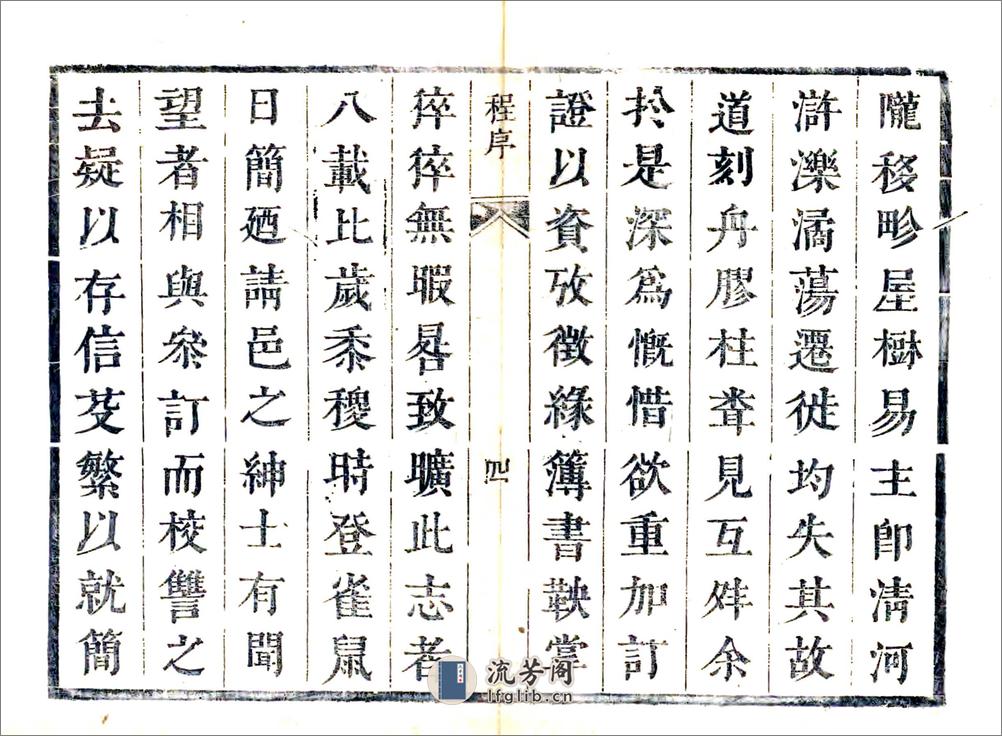 隴移畛屋樹易主卽淸河
滸濼潏蕩遷徙均失其故
道刻舟膠柱聾見互舛余
扵是深為慨惜欲重加訂
證以資攷徵緣簿書鞅掌
程序
四
猝猝無暇晷致曠此志者
八載比歲黍稷時登雀鼠
日簡廼請邑之紳士有聞
望者相與叅訂而校讐之
去疑以存信芟繁以就簡
流芳阁
lfglib.cn